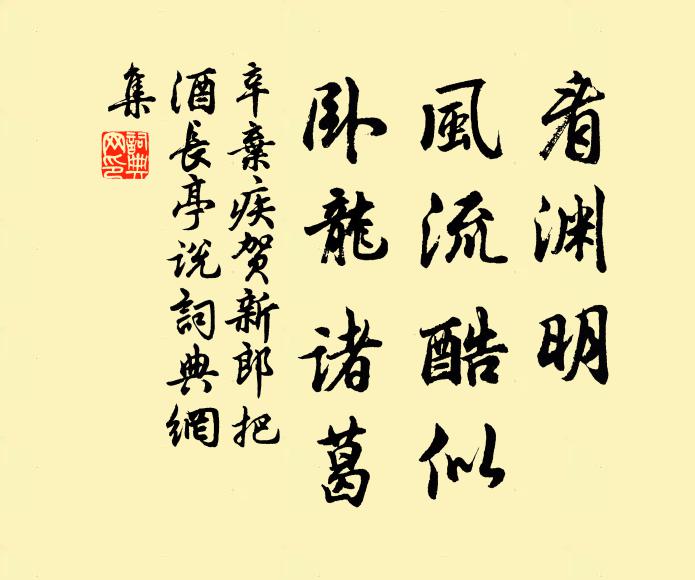 看渊明
風流酷似
卧龍诸葛
辛棄疾贺新郎把
酒長亭说詞典網
集
詞典
网印